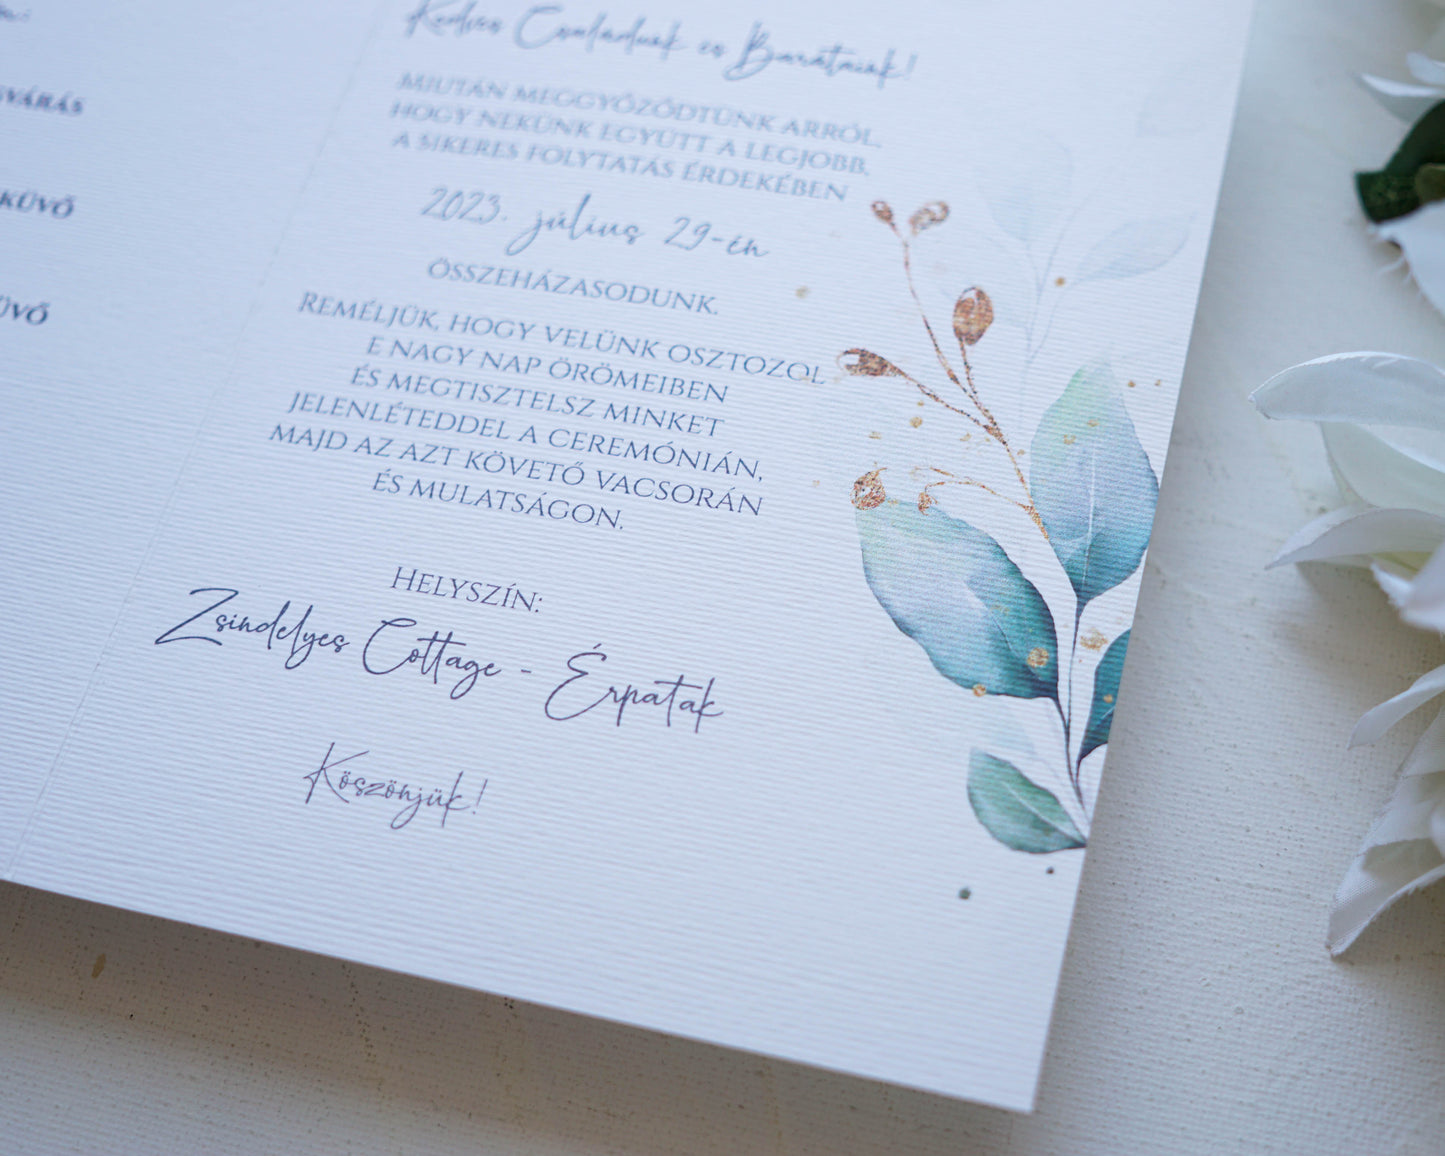 Kedves Családunk és Barátaink!
MIUTÁN MEGGYŐZŐDTÜNK ARRÓL,
HOGY NEKÜNK EGYÜTT A LEGJOBB,
A SIKERES FOLYTATÁS ÉRDEKÉBEN
2023. július 29-én
ÖSSZEHÁZASODUNK.
REMÉLJÜK, HOGY VELÜNK OSZTOZOL
E NAGY NAP ÖRÖMEIBEN
ÉS MEGTISZTELSZ MINKET
JELENLÉTEDDEL A CEREMÓNIÁN,
MAJD AZ AZT KÖVETŐ VACSORÁN
ÉS MULATSÁGON.
HELYSZÍN:
Zsindelyes Cottage - Érpatak
Köszönjük!